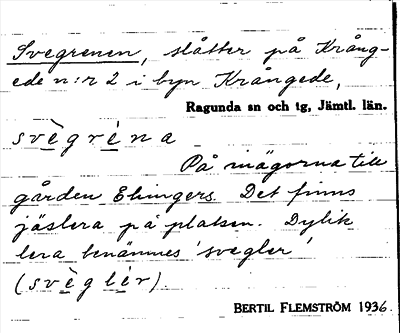 Svegrenen, slåtter på Krång-
ede n:r 2 i byn Krångede,
Ragunda sn och tg, Jämtl. län.
svègrèna
På mägorna till
gården Ehingers. Det finns
jäslera på platsen. Dylik
lera benämnes 'svegler'
(svèglèr).
BERTIL FLEMSTRÖM 1936.